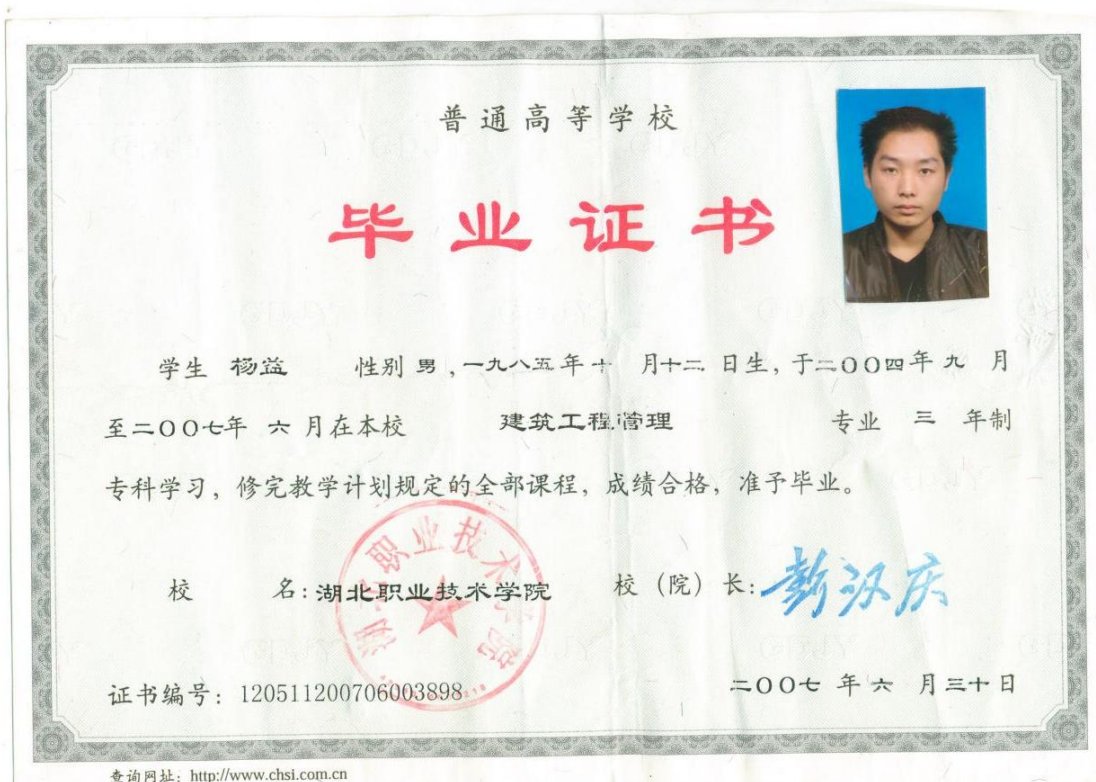 普通高等学校
毕业证书
学生 杨益 性别 男 ,一九八五年十 月十二 日生, 于二00四年 九 月
至二00七年 六 月在本校 建筑工程管理 专业 三 年制
专科学习, 修完教学计划规定的全部课程, 成绩合格, 准予毕业。
校 名: 湖北职业技术学院 校 (院) 长: 彭汉庆
湖北职业技术学院
证书编号: 120511200706003898 二00七 年 六 月三十日
查询网址: http://www.chsi.com.cn